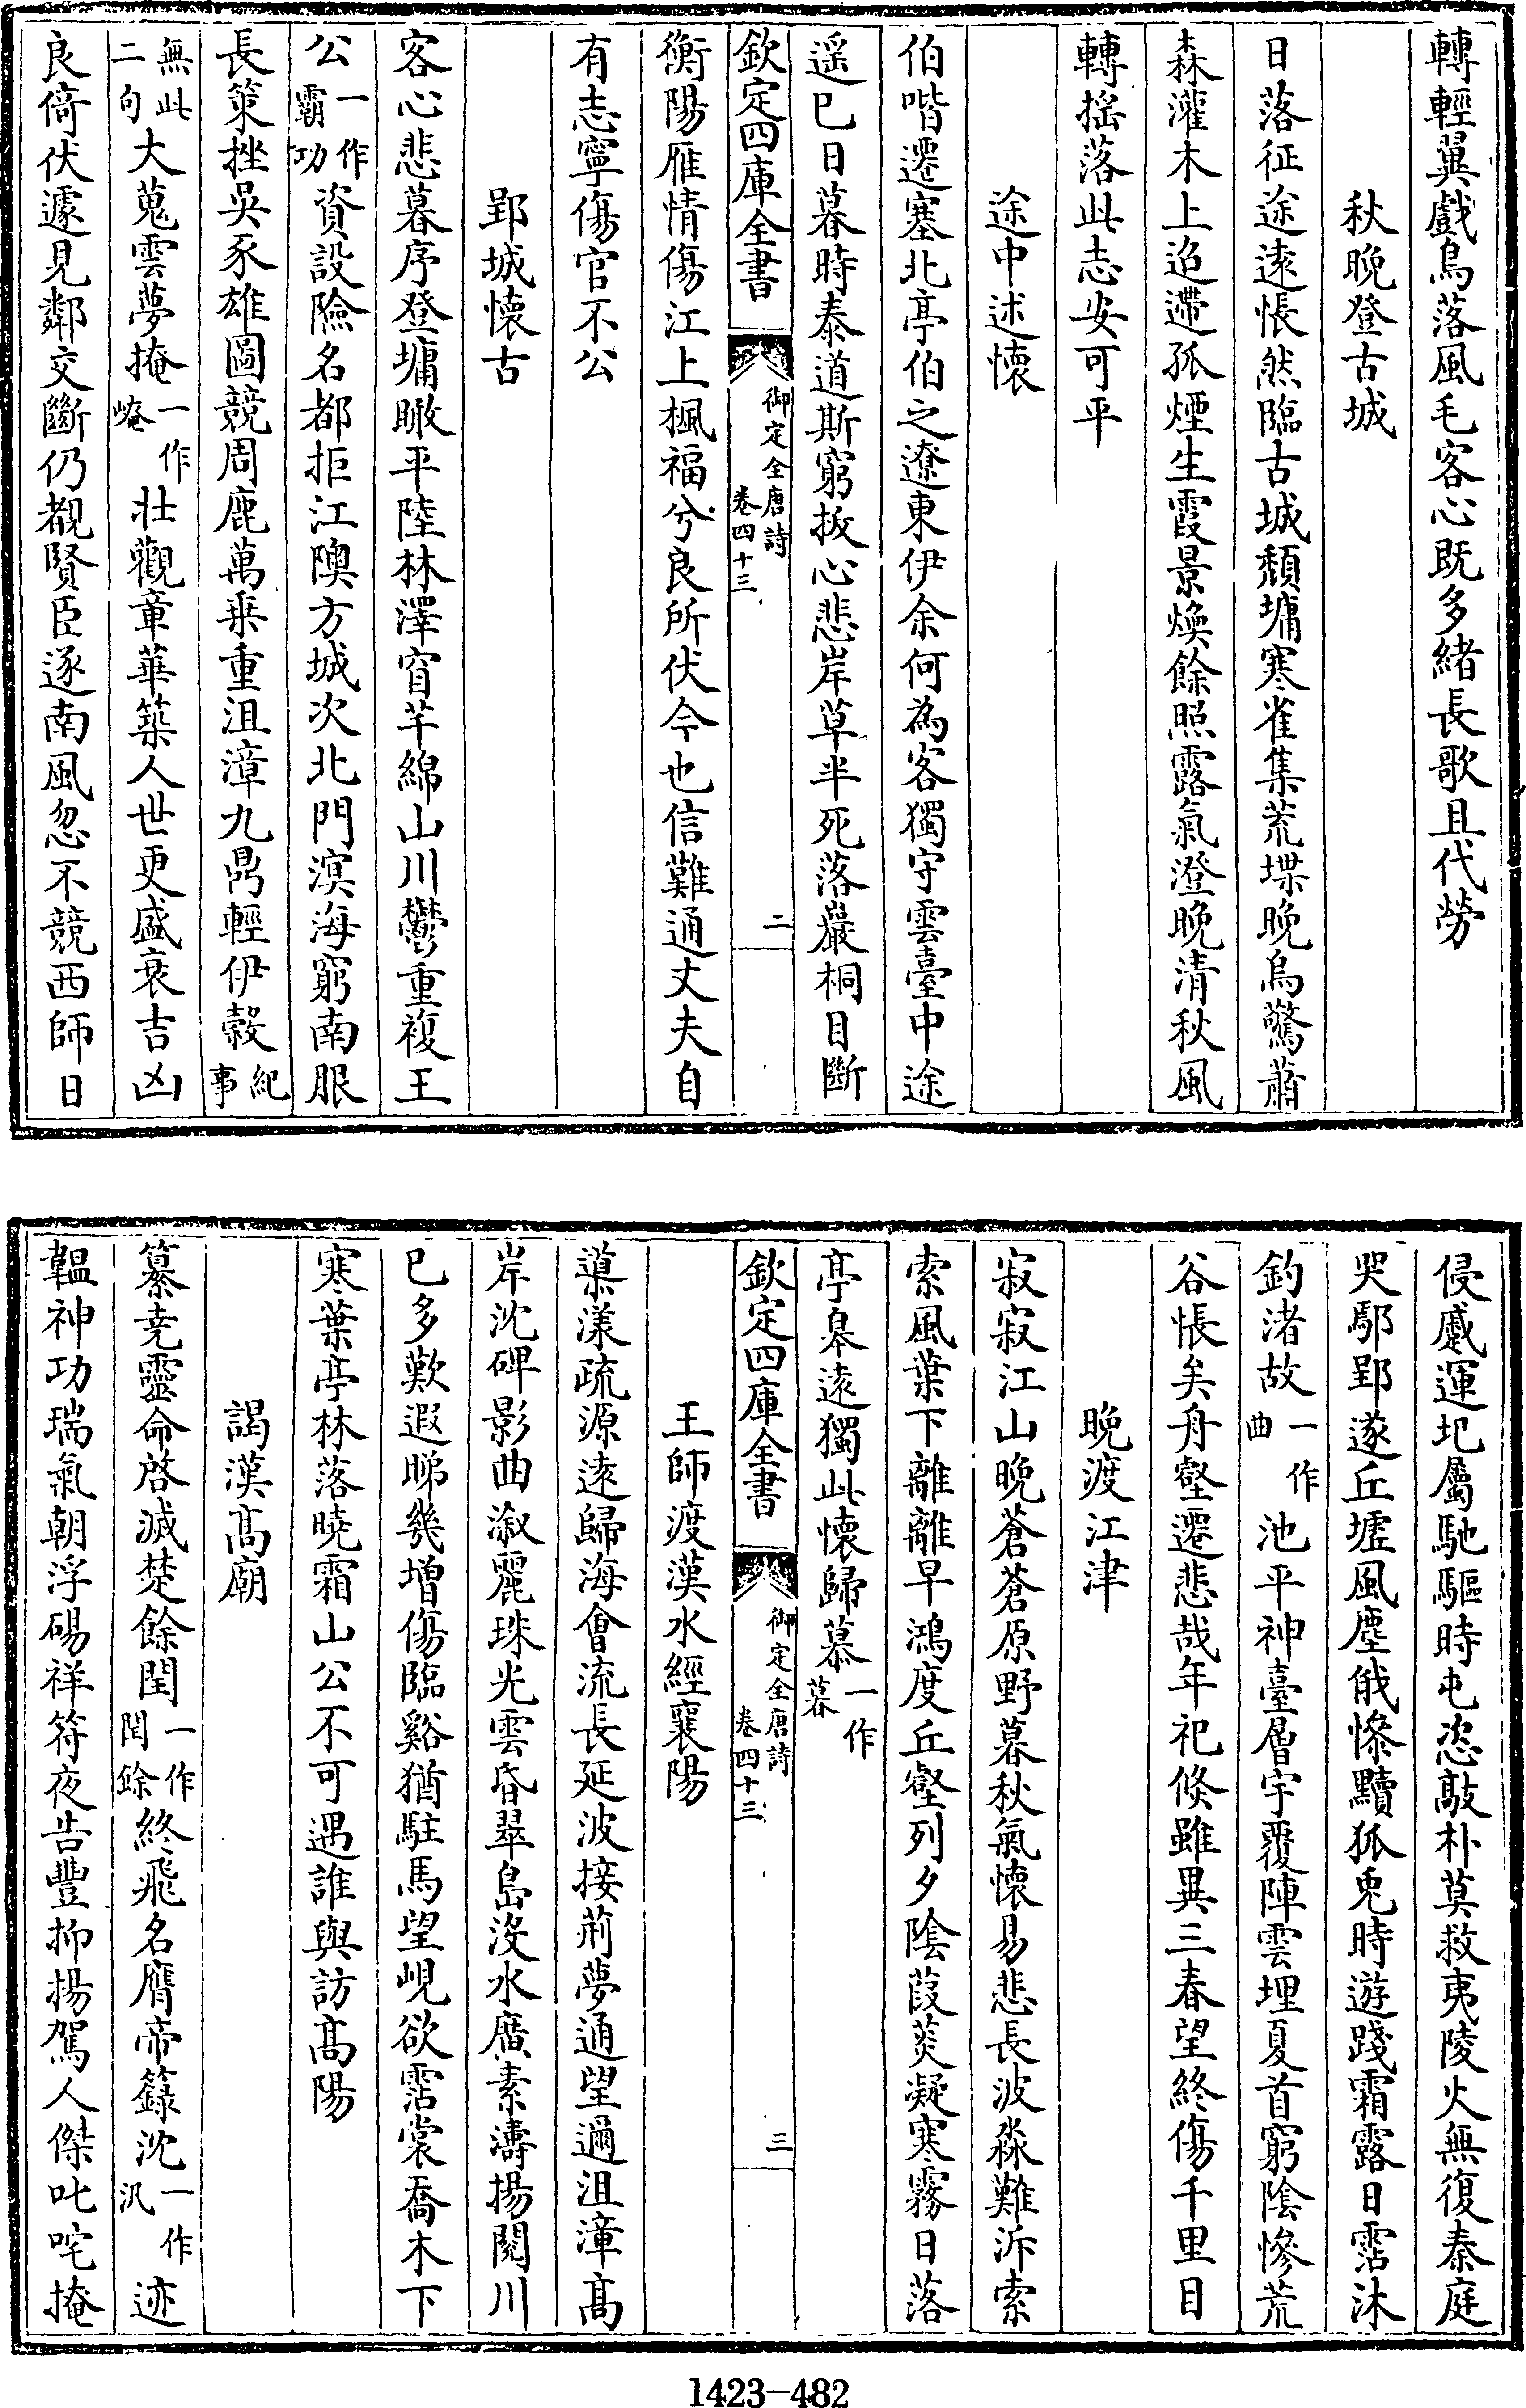 轉輕翼戲鳥落風毛客心既多緒長歌且代勞
秋晚登古城
日落征途遠悵然臨古城頹墉寒雀集荒堞晚烏驚蕭
森灌木上迢遰孤煙生霞景煥餘照露氣澄晚清秋風
轉搖落此志安可平
途中述懷
伯喈遷塞北亭伯之遼東伊余何為客獨守雲臺中途
遥已日暮時泰道斯窮拔心悲岸草半死落巖桐目斷
欽定四庫全書 御定全唐詩 卷四十三 二
衡陽雁情傷江上楓福兮良所伏今也信難通丈夫自
有志寧傷官不公
郢城懷古
客心悲暮序登墉瞰平陸林澤窅芊綿山川鬱重複王
公一作霸功資設險名都拒江隩方城次北門溟海窮南服
長策挫吳豕雄圖競周鹿萬乗重沮漳九鼎輕伊穀紀事
無此二句大蒐雲夢掩一作崦壯觀章華築人世更盛衰吉凶
良倚伏遽見鄰交斷仍覩賢臣逐南風忽不競西師日
侵蹙運圯屬馳驅時屯恣敲朴莫救夷陵火無復秦庭
哭鄢郢遂丘墟風塵俄慘黷狐兎時遊踐霜露日霑沐
釣渚故一作曲池平神臺層宇覆陣雲埋夏首窮陰慘荒
谷悵矣舟壑遷悲哉年祀倐雖異三春望終傷千里目
晚渡江津
寂寂江山晚蒼蒼原野暮秋氣懷易悲長波淼難泝索
索風葉下離離早鴻度丘壑列夕陰葭菼凝寒霧日落
亭皋遠獨此懷歸慕一作暮
欽定四庫全書 御定全唐詩 卷四十三 三
王師渡漢水經襄陽
導漾疏源遠歸海會流長延波接荊夢通望邇沮漳髙
岸沈碑影曲溆麗珠光雲昏翠島没水廣素濤揚閲川
已多歎遐睇幾增傷臨谿猶駐馬望峴欲霑裳喬木下
寒葉亭林落曉霜山公不可遇誰與訪髙陽
謁漢髙廟
纂堯靈命啓滅楚餘閏一作閏餘終飛名膺帝籙沈一作汎迹
韞神功瑞氣朝浮碭祥符夜告豐抑揚駕人傑叱咤掩
1423-482